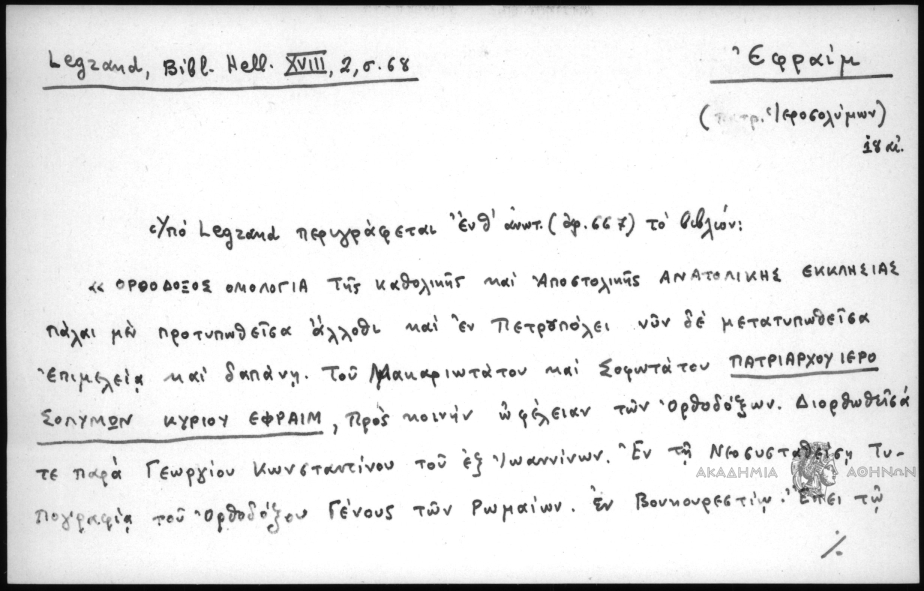 Legrand, Bibl. Hell. XVIII, 2, σ. 68
Ἐφραίμ
(πατρ. Ἱεροσολύμων)
18 αἰ.
Ὑπό Legrand περιγράφεται ἔνθ' ἀνωτ. (ἀρ. 667) τὸ βιβλίον:
« ΟΡΘΟΔΟΞΟΣ ΟΜΟΛΟΓΙΑ Τῆς Καθολικῆς καὶ Ἀποστολικῆς ΑΝΑΤΟΛΙΚΗΣ ΕΚΚΛΗΣΙΑΣ
πάλαι μὲν προτυπωθεῖσα ἄλλοθι καὶ ἐν Πετρουπόλει νῦν δὲ μετατυπωθεῖσα
Ἐπιμελείᾳ καὶ δαπάνῃ. Τοῦ Μακαριωτάτου καὶ Σοφωτάτου ΠΑΤΡΙΑΡΧΟΥ ΙΕΡΟ
ΣΟΛΥΜΩΝ ΚΥΡΙΟΥ ΕΦΡΑΙΜ, Πρὸς κοινήν ὠφέλειαν τῶν Ὀρθοδόξων. Διορθωθεῖσά
τε παρά Γεωργίου Κωνσταντίνου τοῦ ἐξ Ἰωαννίνων. Ἐν τῇ Νεοσυσταθείσῃ Τυ-
πογραφίᾳ τοῦ Ὀρθοδόξου Γένους τῶν Ρωμαίων. ἐν Βουκουρεστίῳ. Ἔπει τῷ
ΑΚΑΔΗΜΙΑ ΑΘΗΝΩΝ
./.